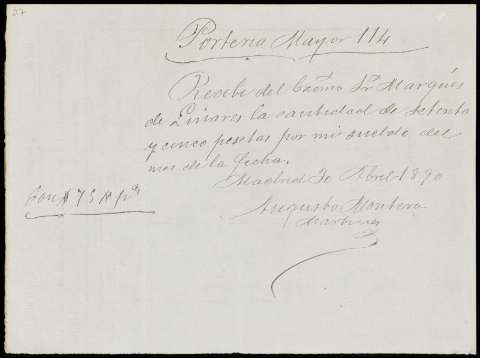 27
Porteria Mayor 114
Recibi del Excmo Sr Marqués
de Linares la cantidad de setenta
y cinco pesetas por mi sueldo del
mes de la fecha.
Madrid 30 Abril 1890
Son # 75 # pts
Augusto Montero
Martinez